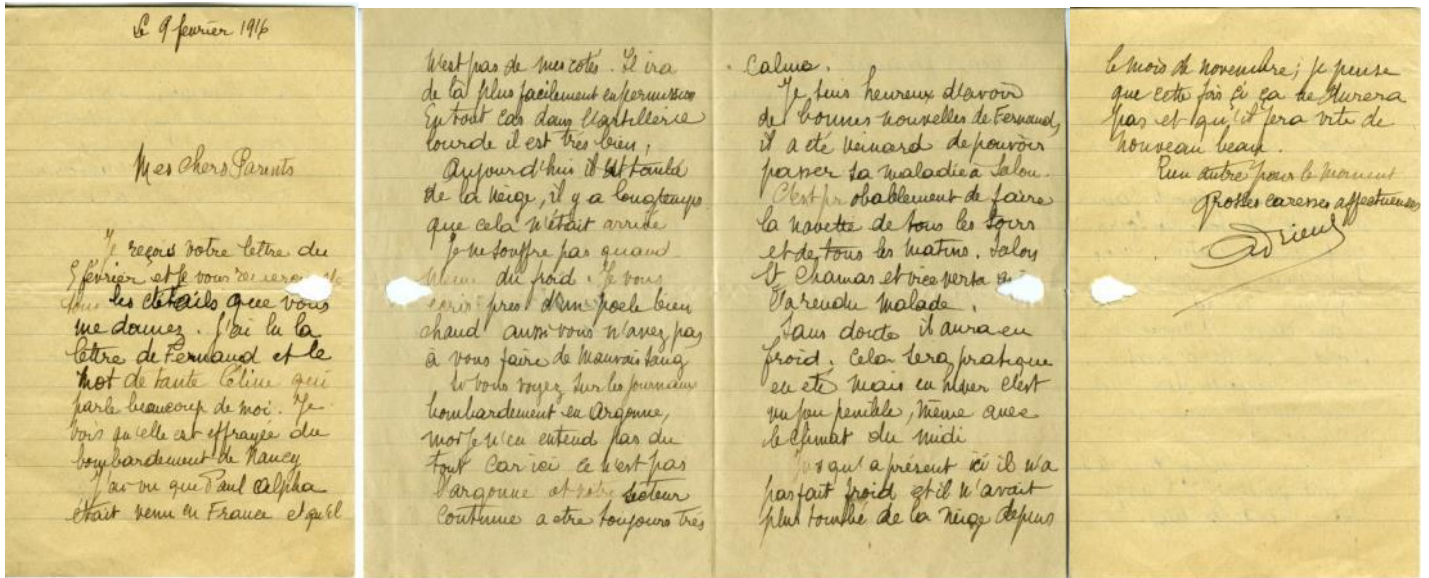 Le 9 février 1916
Mes chers Parents
Je reçois votre lettre du
5 février et je vous remercie de
tous les détails que vous
me donnez. J'ai lu la
lettre de Fernand et le
mot de tante Céline qui
parle beaucoup de moi. Je
vois qu'elle est effrayée du
bombardement de Nancy
J'ai vu que Paul Alpha
était venu en France et qu'il
n'est pas de mes cotés. Il ira
de là plus facilement en permission
En tout cas dans l'artillerie
lourde il est très bien,
Aujourd'hui il est tombé
de la neige, il y a longtemps
que cela n'était arrivé
Je ne souffre pas quand
même du froid. Je vous
écris près d'un poele bien
chaud aussi vous n'avez pas
à vous faire de mauvais sang
Si vous voyez sur les journaux
bombardement en Argonne,
moi je n'en entend pas du
tout car ici ce n'est pas
l'argonne et notre secteur
continue a etre toujours très
calme.
Je suis heureux d'avoir
de bonnes nouvelles de Fernand,
il a été veinard de pouvoir
passer sa maladie a Salon.
C'est probablement de faire
la navette de tous les soirs
et de tous les matins. Salon
St Chamas et vice versa qui
l'a rendu malade.
Sans doute il aura eu
froid. Cela sera pratique
en été mais en hiver c'est
un peu penible, même avec
le climat du midi
Jusqu'a présent ici il n'a
pas fait froid et il n'avait
plus tombé de la neige depuis
le mois de novembre; je pense
que cette fois ci ça ne durera
pas et qu'il fera vite de
nouveau beau.
Rien autre pour le moment
Grosses caresses affectueuses
Adrien